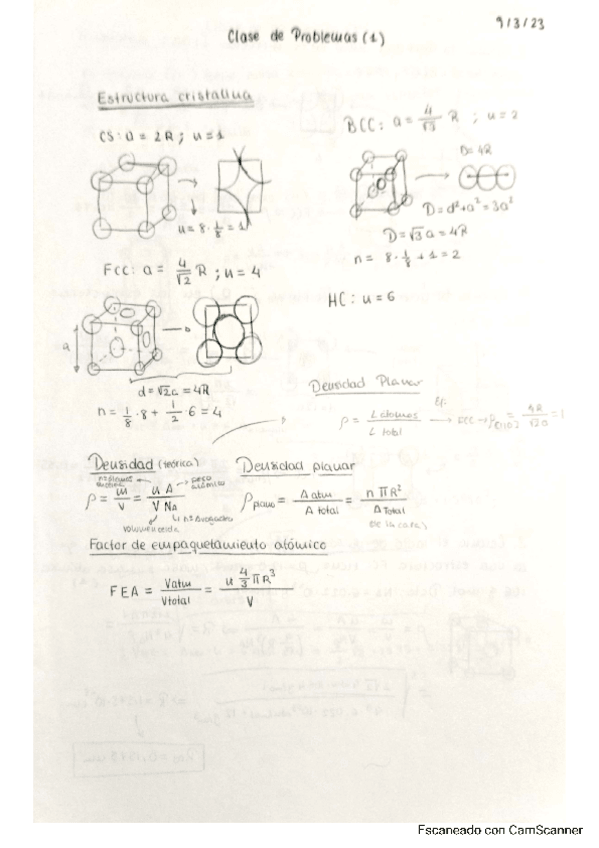 9/3/23
Clase de Problemas (1)
Estructura cristalina
CS: a = 2R ; n = 1
n = 8 · 1/8 = 1
BCC: a = 4/√3 R ; n = 2
D = 4R
D = d² + a² = 3a²
D = √3 a = 4R
n = 8 · 1/8 + 1 = 2
FCC: a = 4/√2 R ; n = 4
a
d = √2a = 4R
n = 1/8 · 8 + 1/2 · 6 = 4
HC: n = 6
Densidad Planar
ρ = L atomos / L total
Ej:
→ FCC → ρ = 4R / √2a = 1
Densidad (teórica)
ρ = m / V = n A / V NA
peso atómico
nº Avogadro
volumen celda
Densidad planar
ρ plano = A atm / A total = n π R² / A Total
(de la cara)
Factor de empaquetamiento atómico
FEA = V atm / V total = n 4/3 π R³ / V
Escaneado con CamScanner